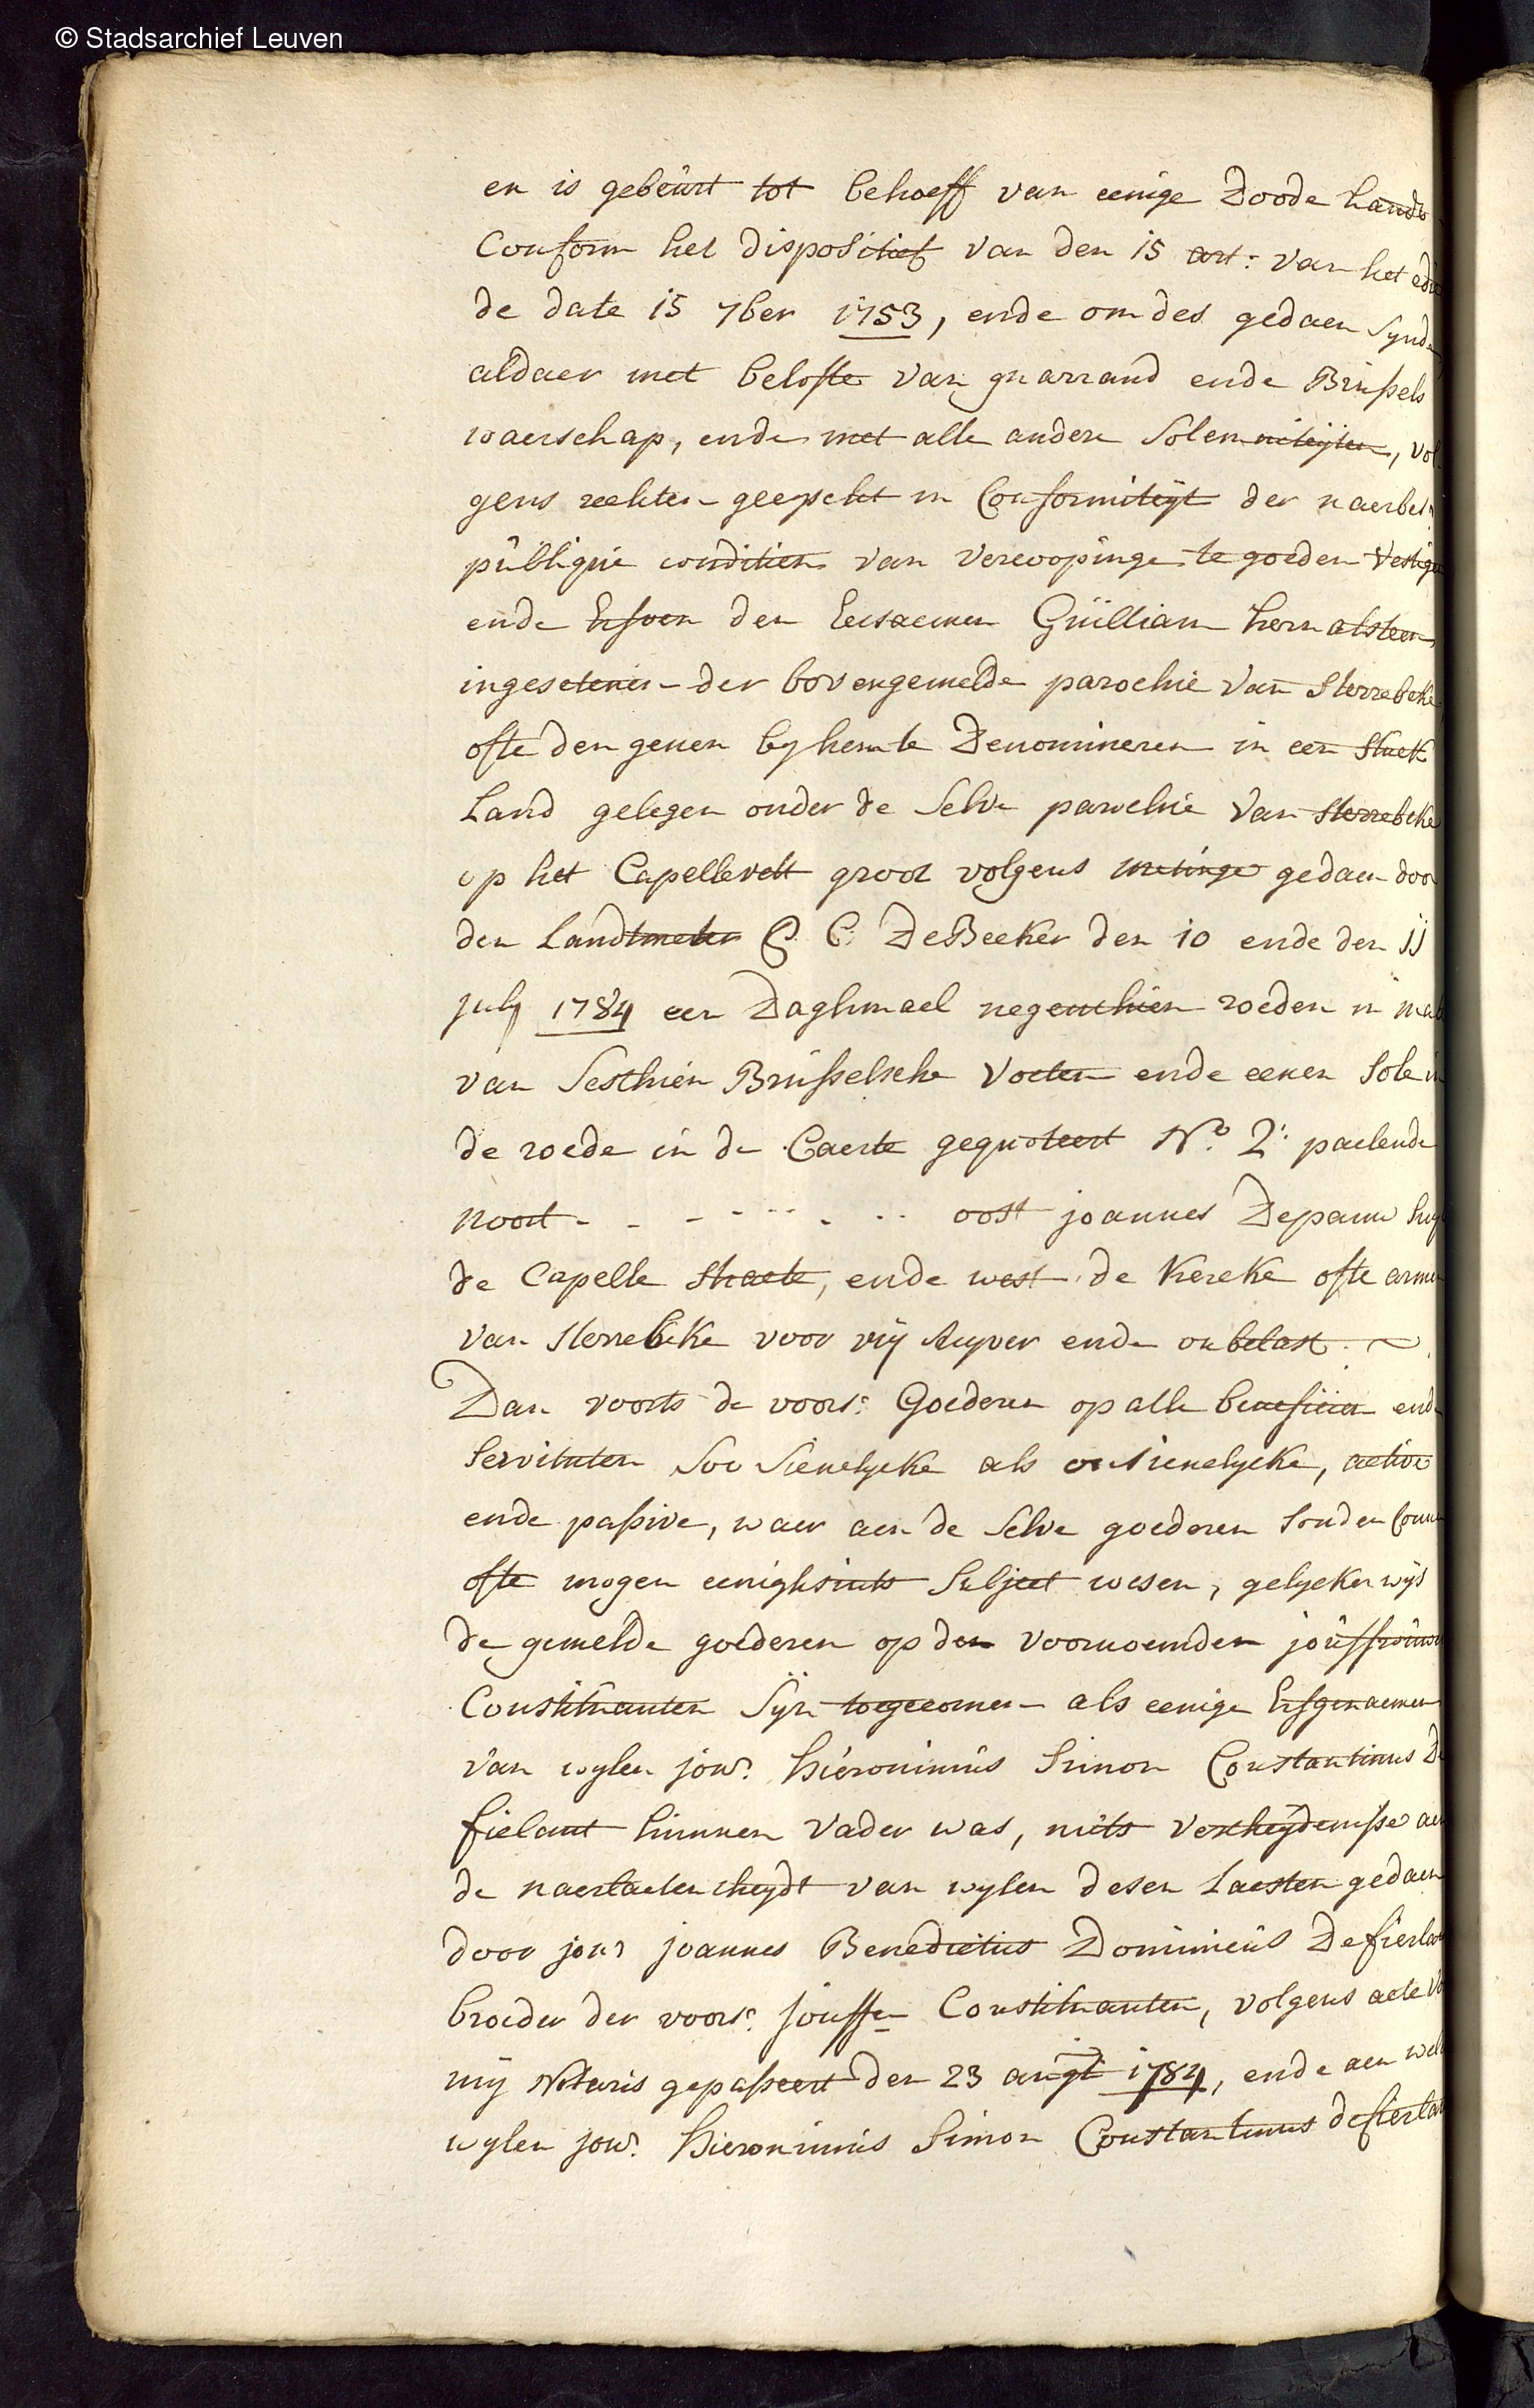 © Stadsarchief Leuven
en is gebeurt tot behoeff van eenige Doode hande
Conform het dispositief van den 15 art: van het edict
de date 15 7ber 1753, ende om des gedaen Synde
aldaer met belofte van guarrand ende Brussels
waerschap, ende met alle andere Solemniteijten, vol
gens rechten geeyscht in Conformiteijt der naerbes:
publique conditien van vercoopinge te goeden Vestigen
ende Erfven den Eersaemen Guilliam hernalsteen
ingesetenen der bovengemelde parochie van Sterrebeke
ofte den genen by hem te Denomineren in een Stuck
Land gelegen onder de Selve parochie van Sterrebeke
op het Capellevelt groot volgens metinge gedaen door
den Landtmeter C. C. DeBeeker den 10 ende den 11
july 1784 een Daghmael negenthien roeden in mate
van Sesthien Brusselsche Voeten ende eenen Sole in
de roede in de Caerte gequoteert No. 2: paelende
noort - - - - - - - - oost joannes Depauw Suyt
de Capelle Straete, ende west de Kercke ofte armen
van Sterrebeke voor vrij Suyver ende onbelast. ~
Dan voorts de voors: Goederen op alle beneficien ende
Servituten Soo Sienelycke als onsienelycke, active
ende passive, waer aen de Selve goederen Souden Connen
ofte mogen eenighsints Subject wesen, gelyckerwys
de gemelde goederen op den voornoemden jouffrouwen
Constituanten Syn toegecomen als eenige Erfgenaemen
van wylen jonr. Hieronimus Simon Constantinus De
fielant hunnen Vader was, mits verscheijdenisse aen
de naerlaetentheydt van wylen desen Laesten gedaen
door jonr joannes Benedictus Dominicus Defierlant
broeder der voors: jouffen Constituanten, volgens acte voor
mij Notaris gepasseert den 23 augt 1784, ende aen welc
wylen jonr. Hieronimus Simon Constantinus defierlant